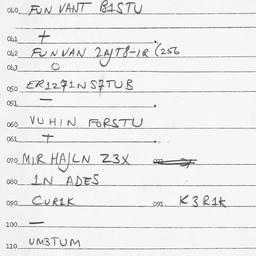 040 FUN VANT B1STU
041 +
042 FUNVAN 2AJT8-1R (256
043 O
050 ER1Z71NS7TUB
051 —
060 VUHIN FORSTU
061 +
070 MIR HAJLN Z3X
080 1N ADES
090 CUR1K 091. K3R1K
100 —
110 UM3TUM